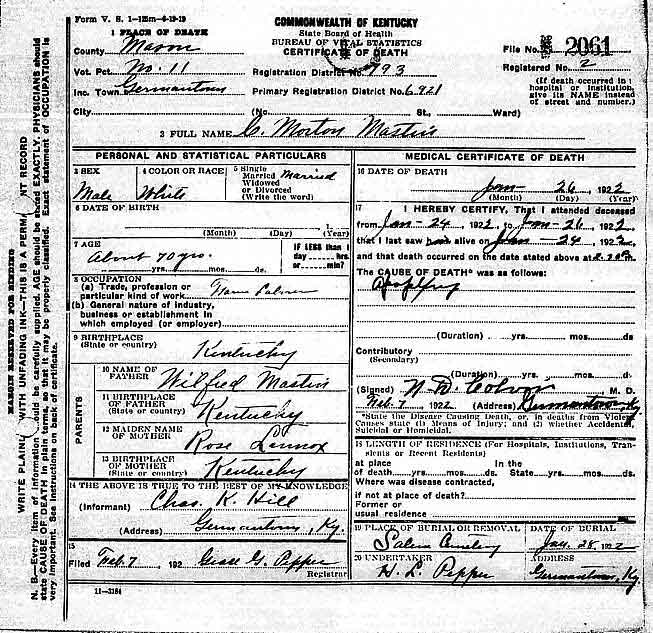 Form V. S. 1-1Em-4-19-19
COMMONWEALTH OF KENTUCKY
State Board of Health
BUREAU OF VITAL STATISTICS
CERTIFICATE OF DEATH
1 PLACE OF DEATH
County Mason
File No. 2061
Vot. Pct. No. 11
Registration District No. 793
Registered No. 2
Inc. Town Germantown
Primary Registration District No. 6921
(If death occurred in a hospital or institution, give its NAME instead of street and number.)
City (No. St., Ward)
2 FULL NAME C. Morton Mastin
PERSONAL AND STATISTICAL PARTICULARS
3 SEX Male
4 COLOR OR RACE White
5 Single Married Widowed or Divorced (Write the word) Married
6 DATE OF BIRTH
(Month) (Day) (Year)
7 AGE About 70 yrs.
yrs. mos. ds.
IF LESS than 1 day hrs. or min?
8 OCCUPATION
(a) Trade, profession or particular kind of work Farm Laborer
(b) General nature of industry, business or establishment in which employed (or employer)
9 BIRTHPLACE
(State or country) Kentucky
PARENTS
10 NAME OF FATHER Wilfred Mastin
11 BIRTHPLACE OF FATHER (State or country) Kentucky
12 MAIDEN NAME OF MOTHER Rose Lennox
13 BIRTHPLACE OF MOTHER (State or country) Kentucky
14 THE ABOVE IS TRUE TO THE BEST OF MY KNOWLEDGE
(Informant) Chas. K. Hill
(Address) Germantown, Ky.
15
Filed Feb. 7, 192 G. Pepper
Registrar
11-3184
MEDICAL CERTIFICATE OF DEATH
16 DATE OF DEATH
Jan - 26, 1922
(Month) (Day) (Year)
17 I HEREBY CERTIFY, That I attended deceased
from Jan - 24, 1922, to Jan - 26, 1922
that I last saw him alive on Jan - 24, 1922
and that death occurred on the date stated above at
The CAUSE OF DEATH* was as follows:
Apoplexy
(Duration) yrs. mos. ds.
Contributory
(Secondary)
(Duration) yrs. mos. ds.
(Signed) N. D. Colvon M. D.
Feb. 7, 1922 (Address) Germantown, Ky
*State the Disease Causing Death, or, in deaths from Violent Causes state (1) Means of Injury; and (2) whether Accidental, Suicidal or Homicidal.
18 LENGTH OF RESIDENCE (For Hospitals, Institutions, Transients or Recent Residents)
at place of death yrs. mos. ds. In the State yrs. mos. ds.
Where was disease contracted,
if not at place of death?
Former or usual residence
19 PLACE OF BURIAL OR REMOVAL Salem Cemetery
DATE OF BURIAL Jan. 28, 1922
20 UNDERTAKER H. L. Pepper
ADDRESS Germantown, Ky
MARGIN RESERVED FOR BINDING
WRITE PLAINLY WITH UNFADING INK—THIS IS A PERMA NT RECORD
N. B.—Every item of information should be carefully supplied. AGE should be stated EXACTLY. PHYSICIANS should
state CAUSE OF DEATH in plain terms, so that it may be properly classified. Exact statement of OCCUPATION is
very important. See instructions on back of certificate.